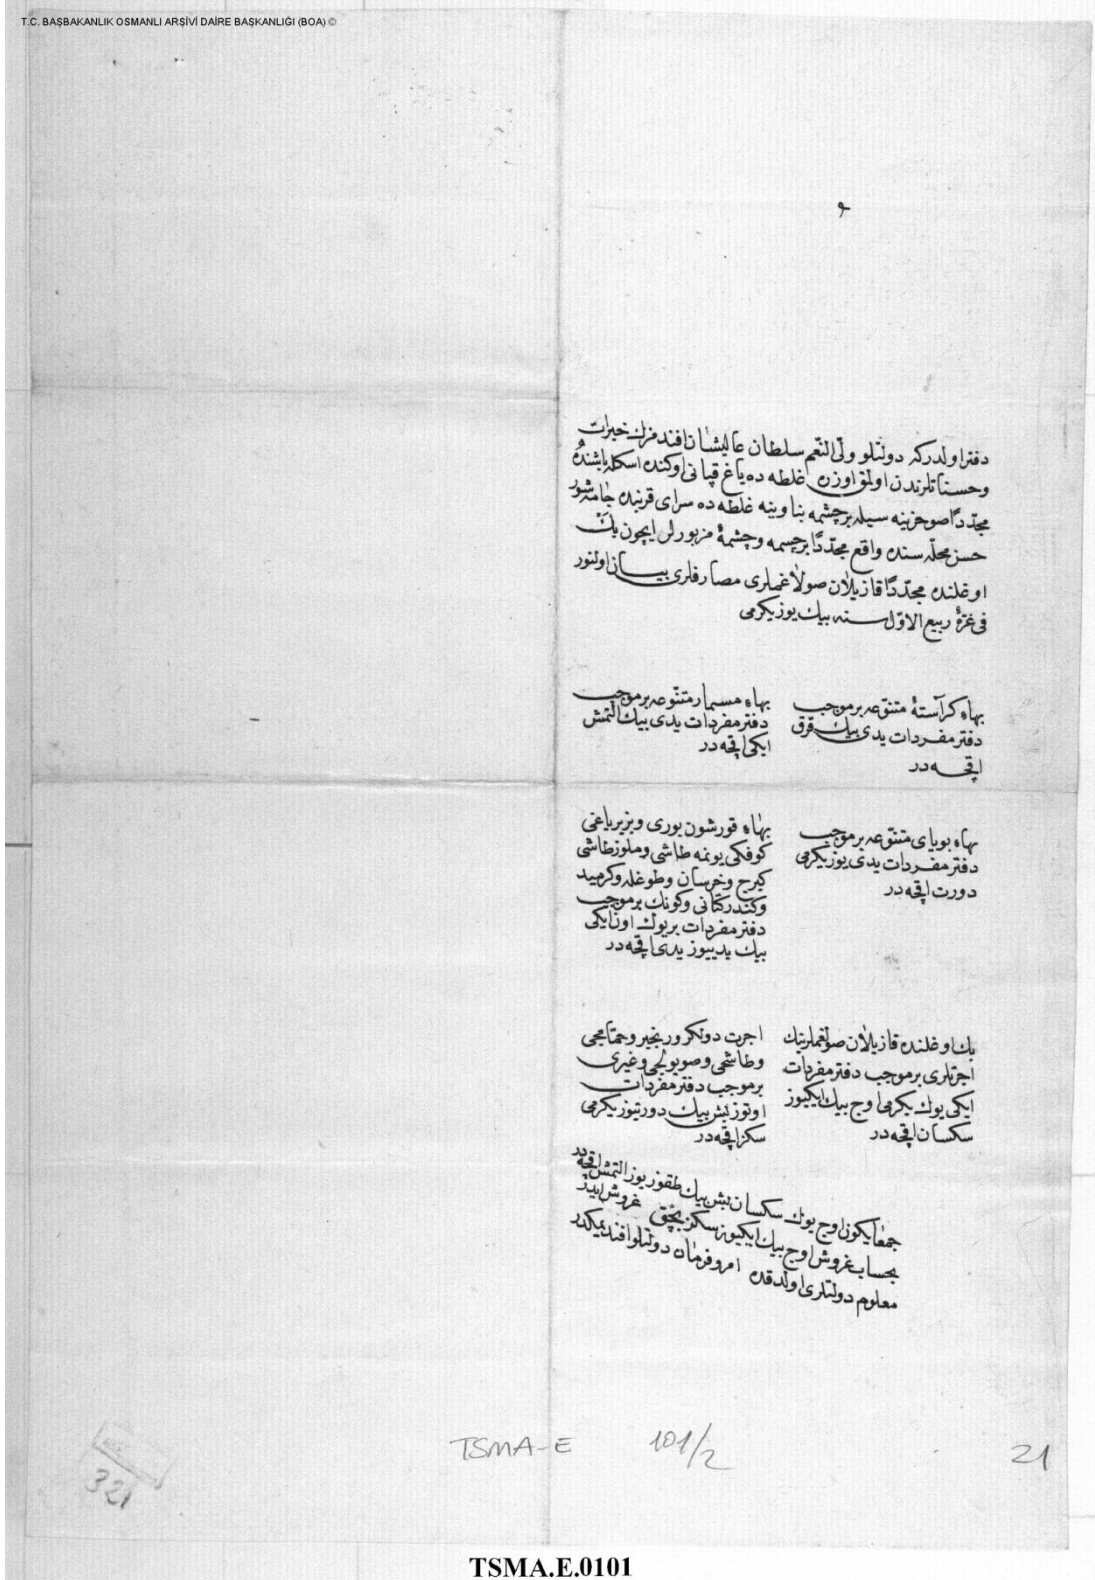 T.C. BAŞBAKANLIK OSMANLI ARŞİVİ DAİRE BAŞKANLIĞI (BOA) ©
دفتر اولدركه دولتلو ولی النعم سلطان عالیشان افندمزك خیرات
وحسناتلرندن اولمق اوزره غلطه ده یاغ قپانی اوكنده اسكله باشنده
مجددا صو خزینه سیله بر چشمه بنا وینه غلطه ده سرای قربنده جامه شور
حسن محله سنده واقع مجددا بر چسمه وچشمهٔ مزبورلر ایچون بك
اوغلنده مجددا قازیلان صو لاغملری مصارفلری بیان اولنور
فی غرهٔ ربیع الاول سنه بیك یوز یكرمی
بهاء كراستهٔ متنوعه بر موجب
دفتر مفردات یدی بیك قرق
اقچه در
بهاء مسمار متنوعه بر موجب
دفتر مفردات یدی بیك التمش
ایكی اقچه در
بهاء بویای متنوعه بر موجب
دفتر مفردات یدی یوز یكرمی
دورت اقچه در
بهاء قورشون بوری وبزیر یاغی
كوفكی یونمه طاشی وملوز طاشی
كیرج وخرسان وطوغله وكرمید
وكندر كتانی وكونك بر موجب
دفتر مفردات بر یوك اون ایكی
بیك یدییوز یدی اقچه در
بك اوغلنده قازیلان صو لغملرینك
اجرتلری بر موجب دفتر مفردات
ایكی یوك یكرمی اوج بیك ایكیوز
سكسان اقچه در
اجرت دولكر ورنجبر وحمامجی
وطاشجی وصویولجی وغیری
بر موجب دفتر مفردات
اوتوز بش بیك دورتیوز یكرمی
سكز اقچه در
جمعا یكون اوج یوك سكسان بش بیك طقوز یوز التمش اقچه در
بحساب غروش اوج بیك ایكیوز سكز بچق غروش ایدر
معلوم دولتلری اولدقده امر وفرمان دولتلو افندیمكدر
321
TSMA-E 101/2 21
TSMA.E.0101